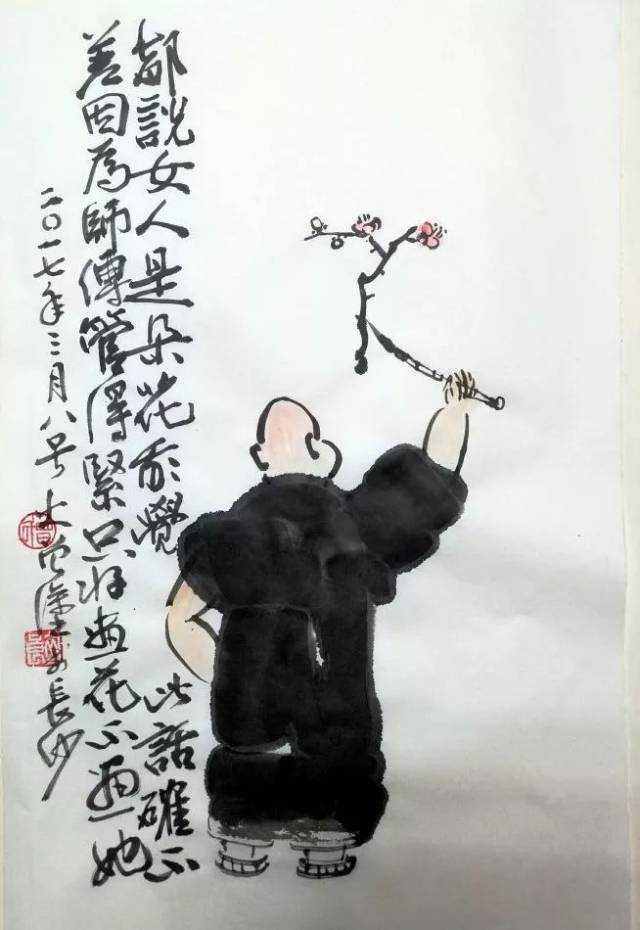 都說女人是朵花我覺
此話確不
差因為師傅管得緊只好畫花不畫她
二〇一七年三月八号大於長沙